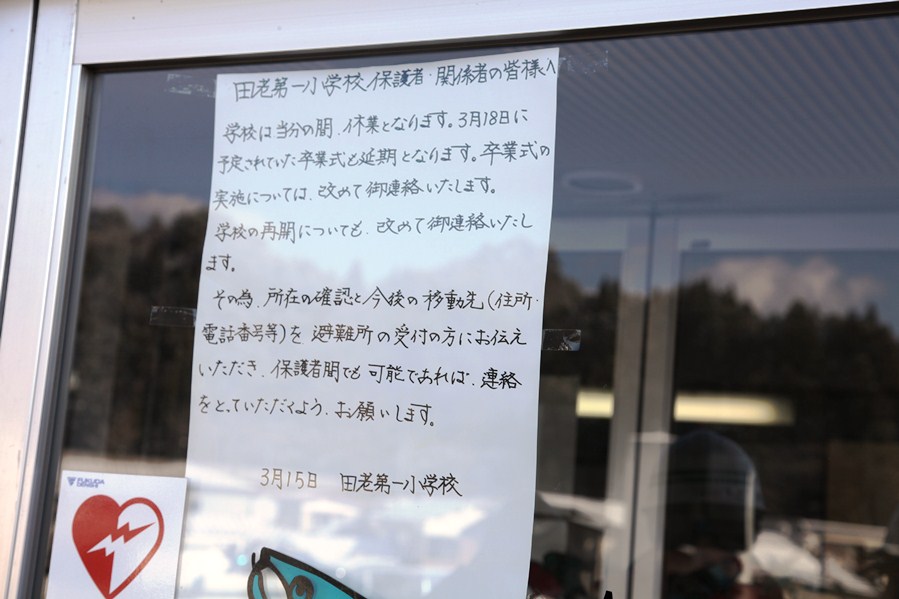 田老第一小学校保護者・関係者の皆様へ
学校は当分の間、休業となります。3月18日に
予定されていた卒業式も延期となります。卒業式の
実施については、改めて御連絡いたします。
学校の再開についても、改めて御連絡いたし
ます。
その為、所在の確認と今後の移動先(住所・
電話番号等)を避難所の受付の方にお伝え
いただき、保護者間でも可能であれば、連絡
をとっていただくよう、お願いします。
3月15日 田老第一小学校
FUKUDA
DENSHI